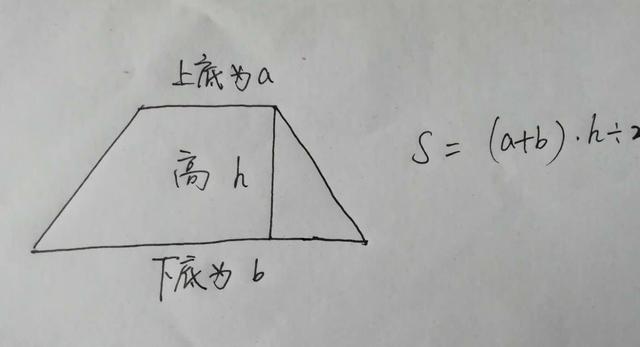 上底为a
高 h
S = (a+b)·h÷2
下底为 b